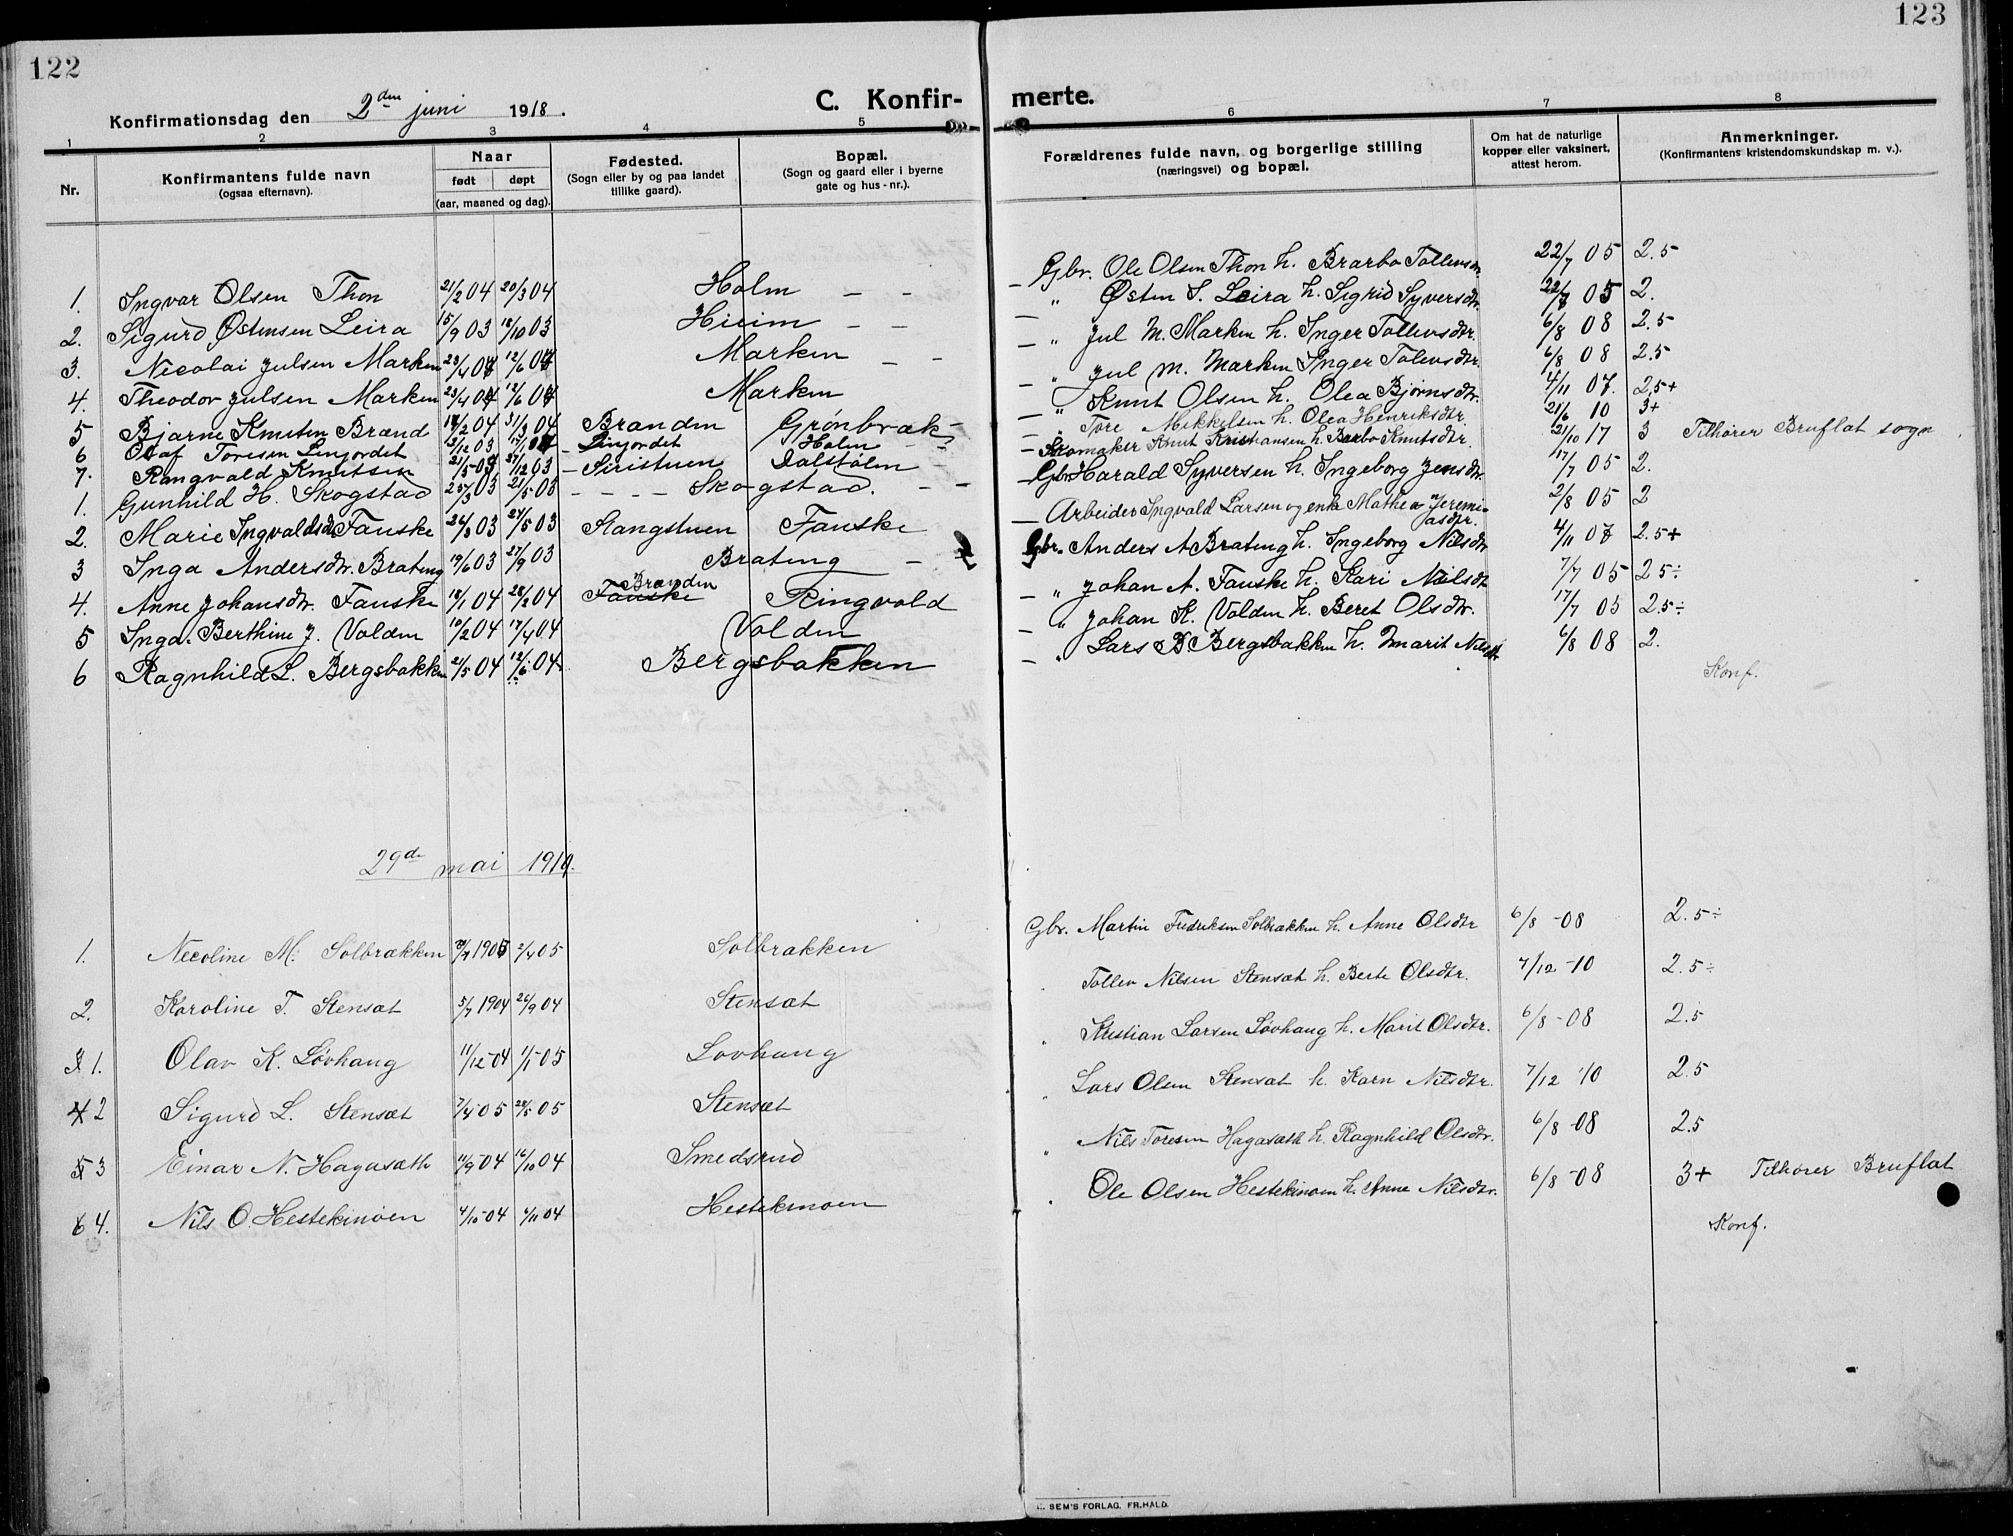 122
123
Konfirmationsdag den 2den juni 1918.
C. Konfir-
merte.
1 2 3 4 5 6 7 8
Nr.
Konfirmantens fulde navn
(ogsaa efternavn).
Naar
født døpt
(aar, maaned og dag).
Fødested.
(Sogn eller by og paa landet
tillike gaard).
Bopæl.
(Sogn og gaard eller i byerne
gate og hus-nr.).
Forældrenes fulde navn, og borgerlige stilling
(næringsvei) og bopæl.
Om hat de naturlige
kopper eller vaksinert,
attest herom.
Anmerkninger.
(Konfirmantens kristendomskundskap m. v.).
1. Ingvar Olsen Thon 21/2 04 20/3 04 Holm – – Gbr. Ole Olsen Thon h. Brarbo Tollevsdr. 22/7 05 2.5
2. Sigurd Østensen Leira 15/9 03 18/10 03 Hieim – – – " Østen S. Leira h. Sigrid Syversdtr. 22/7 05 2.
3. Nicolai Julsen Marken 23/4 04 12/6 04 Marken – – – " Jul M. Marken h. Inger Tollevsdtr. 6/8 08 2.5
4. Theodor Julsen Marken 23/4 04 12/6 04 Marken – " Jul M. Marken Inger Tolevsdtr. 6/8 08 2.5
5 Bjarne Knutsen Brænd 14/2 04 31/3 04 Branden Grönbræk – " Knut Olsen h. Olea Bjørnsdtr. 4/11 07. 2,5+
6 Olaf Toresen Linjordet Linjordet Holm – " Tore Mikkelsen h. Olea Henriksdtr. 21/6 10 3+
7. Rangvald Knutsen – Siristuen Dalstølen – Skomaker Knut Kristiansen h. Barbo Knutsdtr. 21/10 17 3 Tilhører Bruflat sogn
1. Gunhild H. Skogstad 03 21/5 03 – – – – Skogstad. – – – Gbr. Harald Syversen h. Ingeborg Jensdtr. 17/7 05 2.
2. Marie Ingvaldsdtr Fauske 26/3 03 24/5 03 Stangstuen Fauske – Arbeider Ingvald Larsen og enke Mathea Jeremi-
asdtr. 2/8 05 2
3 Inga Andersdtr. Brateng 19/6 03 27/9 03 Brateng – Gbr. Anders A Brateng h. Ingeborg Nilsdtr 4/11 07 2.5+
4. Anne Johansdtr. Fauske 18/1 04 28/2 04 Fauske Branden Ringvold – " Johan A. Fauske h. Kari Nilsdt 7/7 05 2 5÷
5 Inga Berthine J. Volden 10/2 04 17/4 04 Volden – " Johan K. Volden h. Beret Olsdtr. 17/7 05 2.5÷
6 Ragnhild L. Bergsbakken 2/5 04 12/6 04 Bergsbakken – " Lars B Bergsbakken h. Marit Nilsdtr 6/8 08 2.
Konf.
29de mai 1919.
1. Necoline M. Solbrækken 2/4 05 Solbrækken Gbr. Martin Fredriksen Solbrækken h. Anne Olsdtr 6/8 -08 2.5÷
2. Karoline T. Stensæt 5/7 1904 26/9 04 Stensæt " Tollev Nilsen Stensæt h. Berte Olsdtr. 7/12 -10 2.5÷
3 1. Olav K. Løvhaug 11/12 -04 1/1 -05 Lovhaug " Kristian Larsen Løvhaug h. Marit Olsdtr. 6/8 -08 2.5
4 2 Sigurd L. Stensæt 7/4 05 28/5 05 Stensæt " Lars Olsen Stensæt h. Karn Nilsdtr. 7/12 10 2.5
5 3 Einar N. Hagasæth 11/9 04 16/10 04 Smedsrud " Nils Toresen Hagasæth h. Ragnhild Olsdtr. 6/8 -08 2.5
6 4. Nils O Hestekinøen 4/10 -04 04 Hestekinoen " Ole Olsen Hestekinøen h. Anne Nilsdtr. 6/8 -08 3+ Tilhører Bruflat
Konf.
SEM'S FORLAG, FR.HALD.